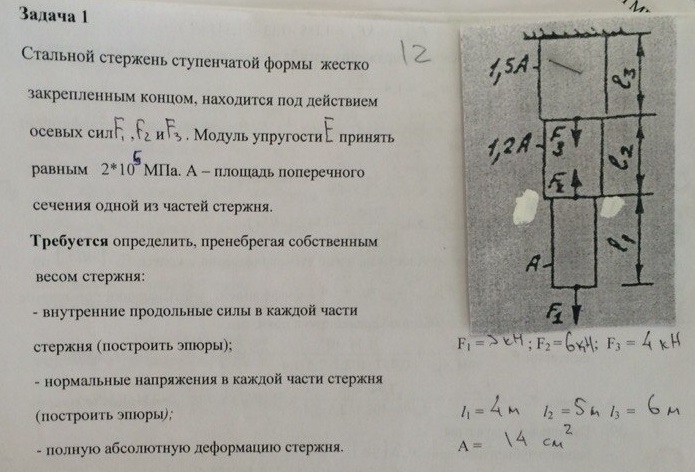 Задача 1
12
Стальной стержень ступенчатой формы жестко
закрепленным концом, находится под действием
осевых сил F₁, F₂ и F₃. Модуль упругости E принять
равным 2*10⁵ МПа. А – площадь поперечного
сечения одной из частей стержня.
Требуется определить, пренебрегая собственным
весом стержня:
- внутренние продольные силы в каждой части
стержня (построить эпюры);
- нормальные напряжения в каждой части стержня
(построить эпюры);
- полную абсолютную деформацию стержня.
1,5А
ℓ₃
1,2А
F₃
F₂
ℓ₂
А
ℓ₁
F₁
F₁ = кН; F₂= 6кН; F₃ = 4 кН
l₁= 4 м l₂ = 5м l₃ = 6 м
А = 14 см²